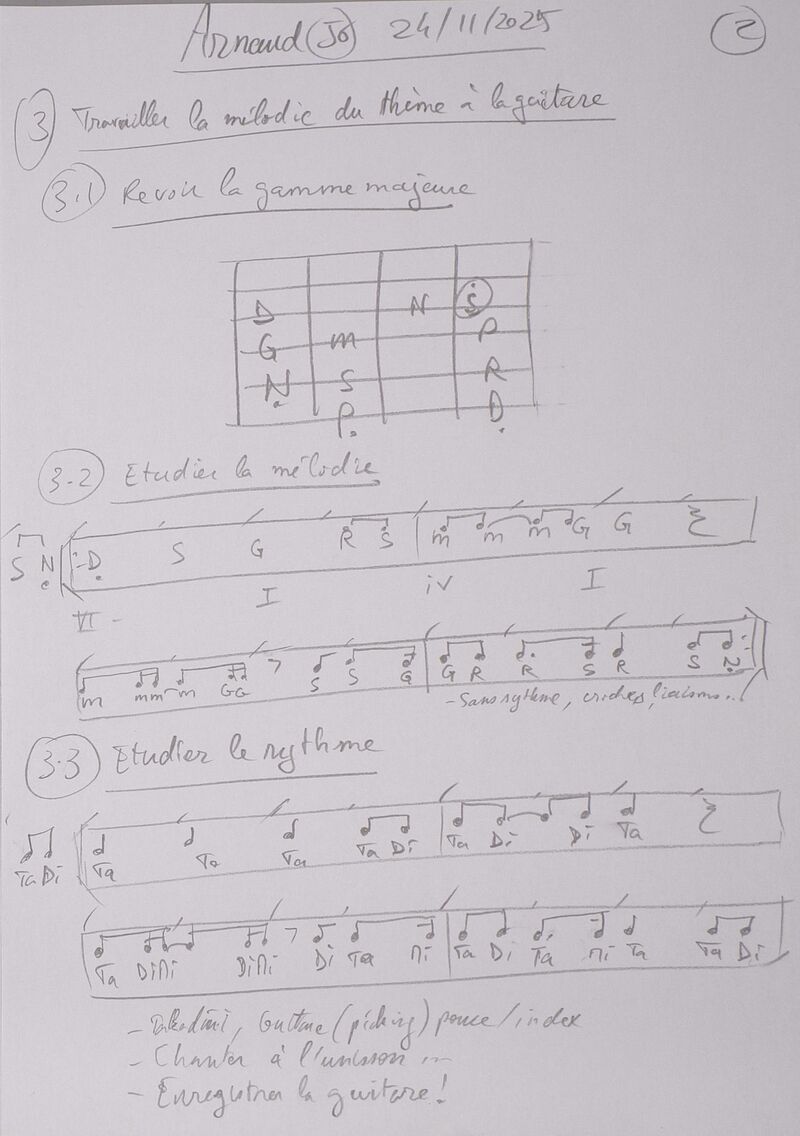 Arnaud (Jo) 24/11/2025 2
3 Travailler la mélodie du thème à la guitare
3.1 Revoir la gamme majeure
D N Ṡ
G m P
Ṇ S R
P. D.
3.2 Etudier la mélodie
S Ṇ D. S G R S m m m G G
VI - I iv I
m m m m G G S S G G R R S R S Ṇ
- Sans rythme, croches, liaisons...
3.3 Etudier le rythme
Ta Di Ta Ta Ta Ta Di Ta Di Di Ta
Ta Di Mi Di Mi Di Ta Mi Ta Di Ta Mi Ta Ta Di
- Takadimi, Guitare (picking) pouce/index
- Chanter à l'unisson ...
- Enregistrer la guitare !